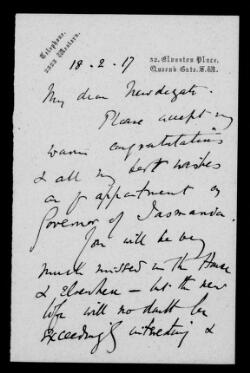 Telephone,
2323 Western.
32. Elvaston Place,
Queen's Gate. S.W.
18-2-17
My dear Newdegate.
Please accept my
warm congratulations
& all my best wishes
on yr appointment as
Governor of Tasmania.
You will be very
much missed in the House
& Elsewhere - but the new
life will no doubt be
exceedingly interesting &